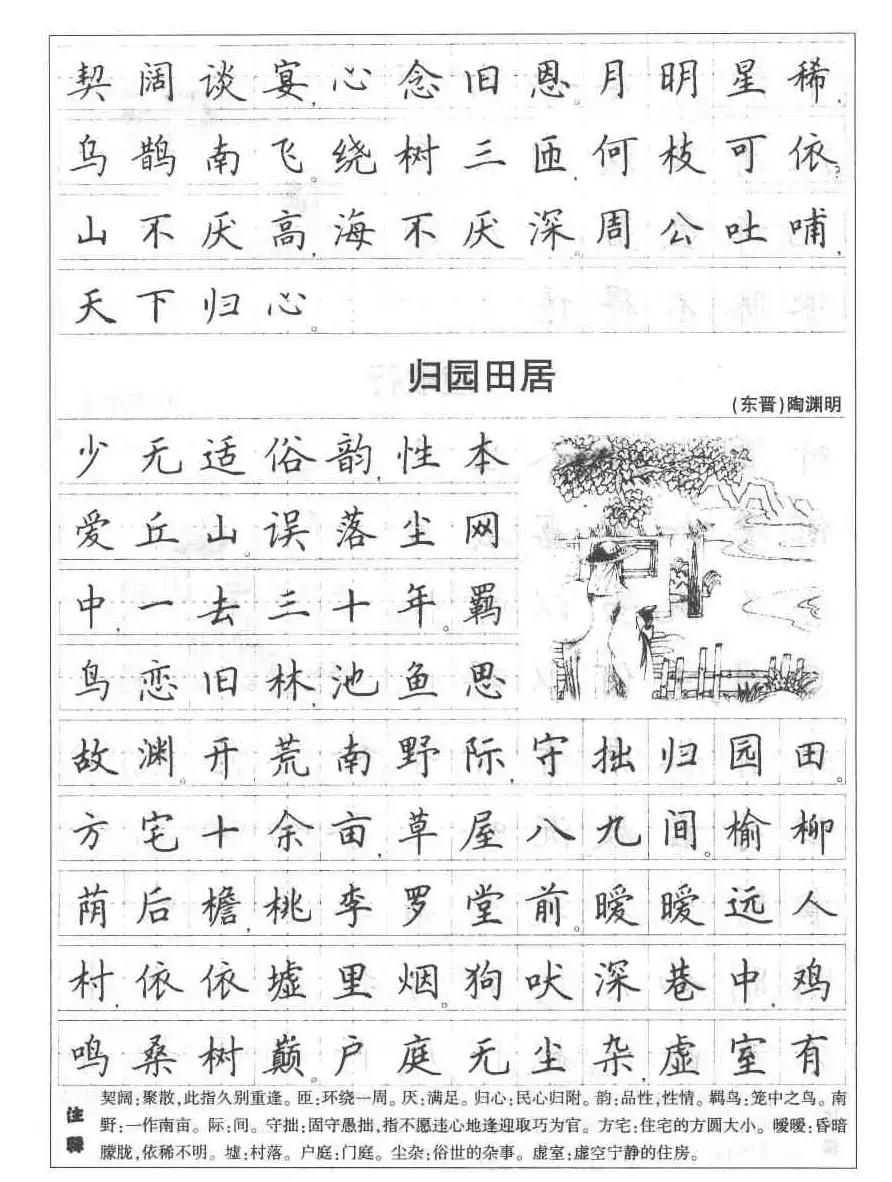 契阔谈宴,心念旧恩。月明星稀,
乌鹊南飞。绕树三匝,何枝可依?
山不厌高,海不厌深。周公吐哺,
天下归心。
归园田居
(东晋)陶渊明
少无适俗韵,性本
爱丘山。误落尘网
中,一去三十年。羁
鸟恋旧林,池鱼思
故渊。开荒南野际,守拙归园田。
方宅十余亩,草屋八九间。榆柳
荫后檐,桃李罗堂前。暧暧远人
村,依依墟里烟。狗吠深巷中,鸡
鸣桑树巅。户庭无尘杂,虚室有
注释
契阔:聚散,此指久别重逢。匝:环绕一周。厌:满足。归心:民心归附。韵:品性,性情。羁鸟:笼中之鸟。南
野:一作南亩。际:间。守拙:固守愚拙,指不愿违心地逢迎取巧为官。方宅:住宅的方圆大小。暧暧:昏暗
朦胧,依稀不明。墟:村落。户庭:门庭。尘杂:俗世的杂事。虚室:虚空宁静的住房。